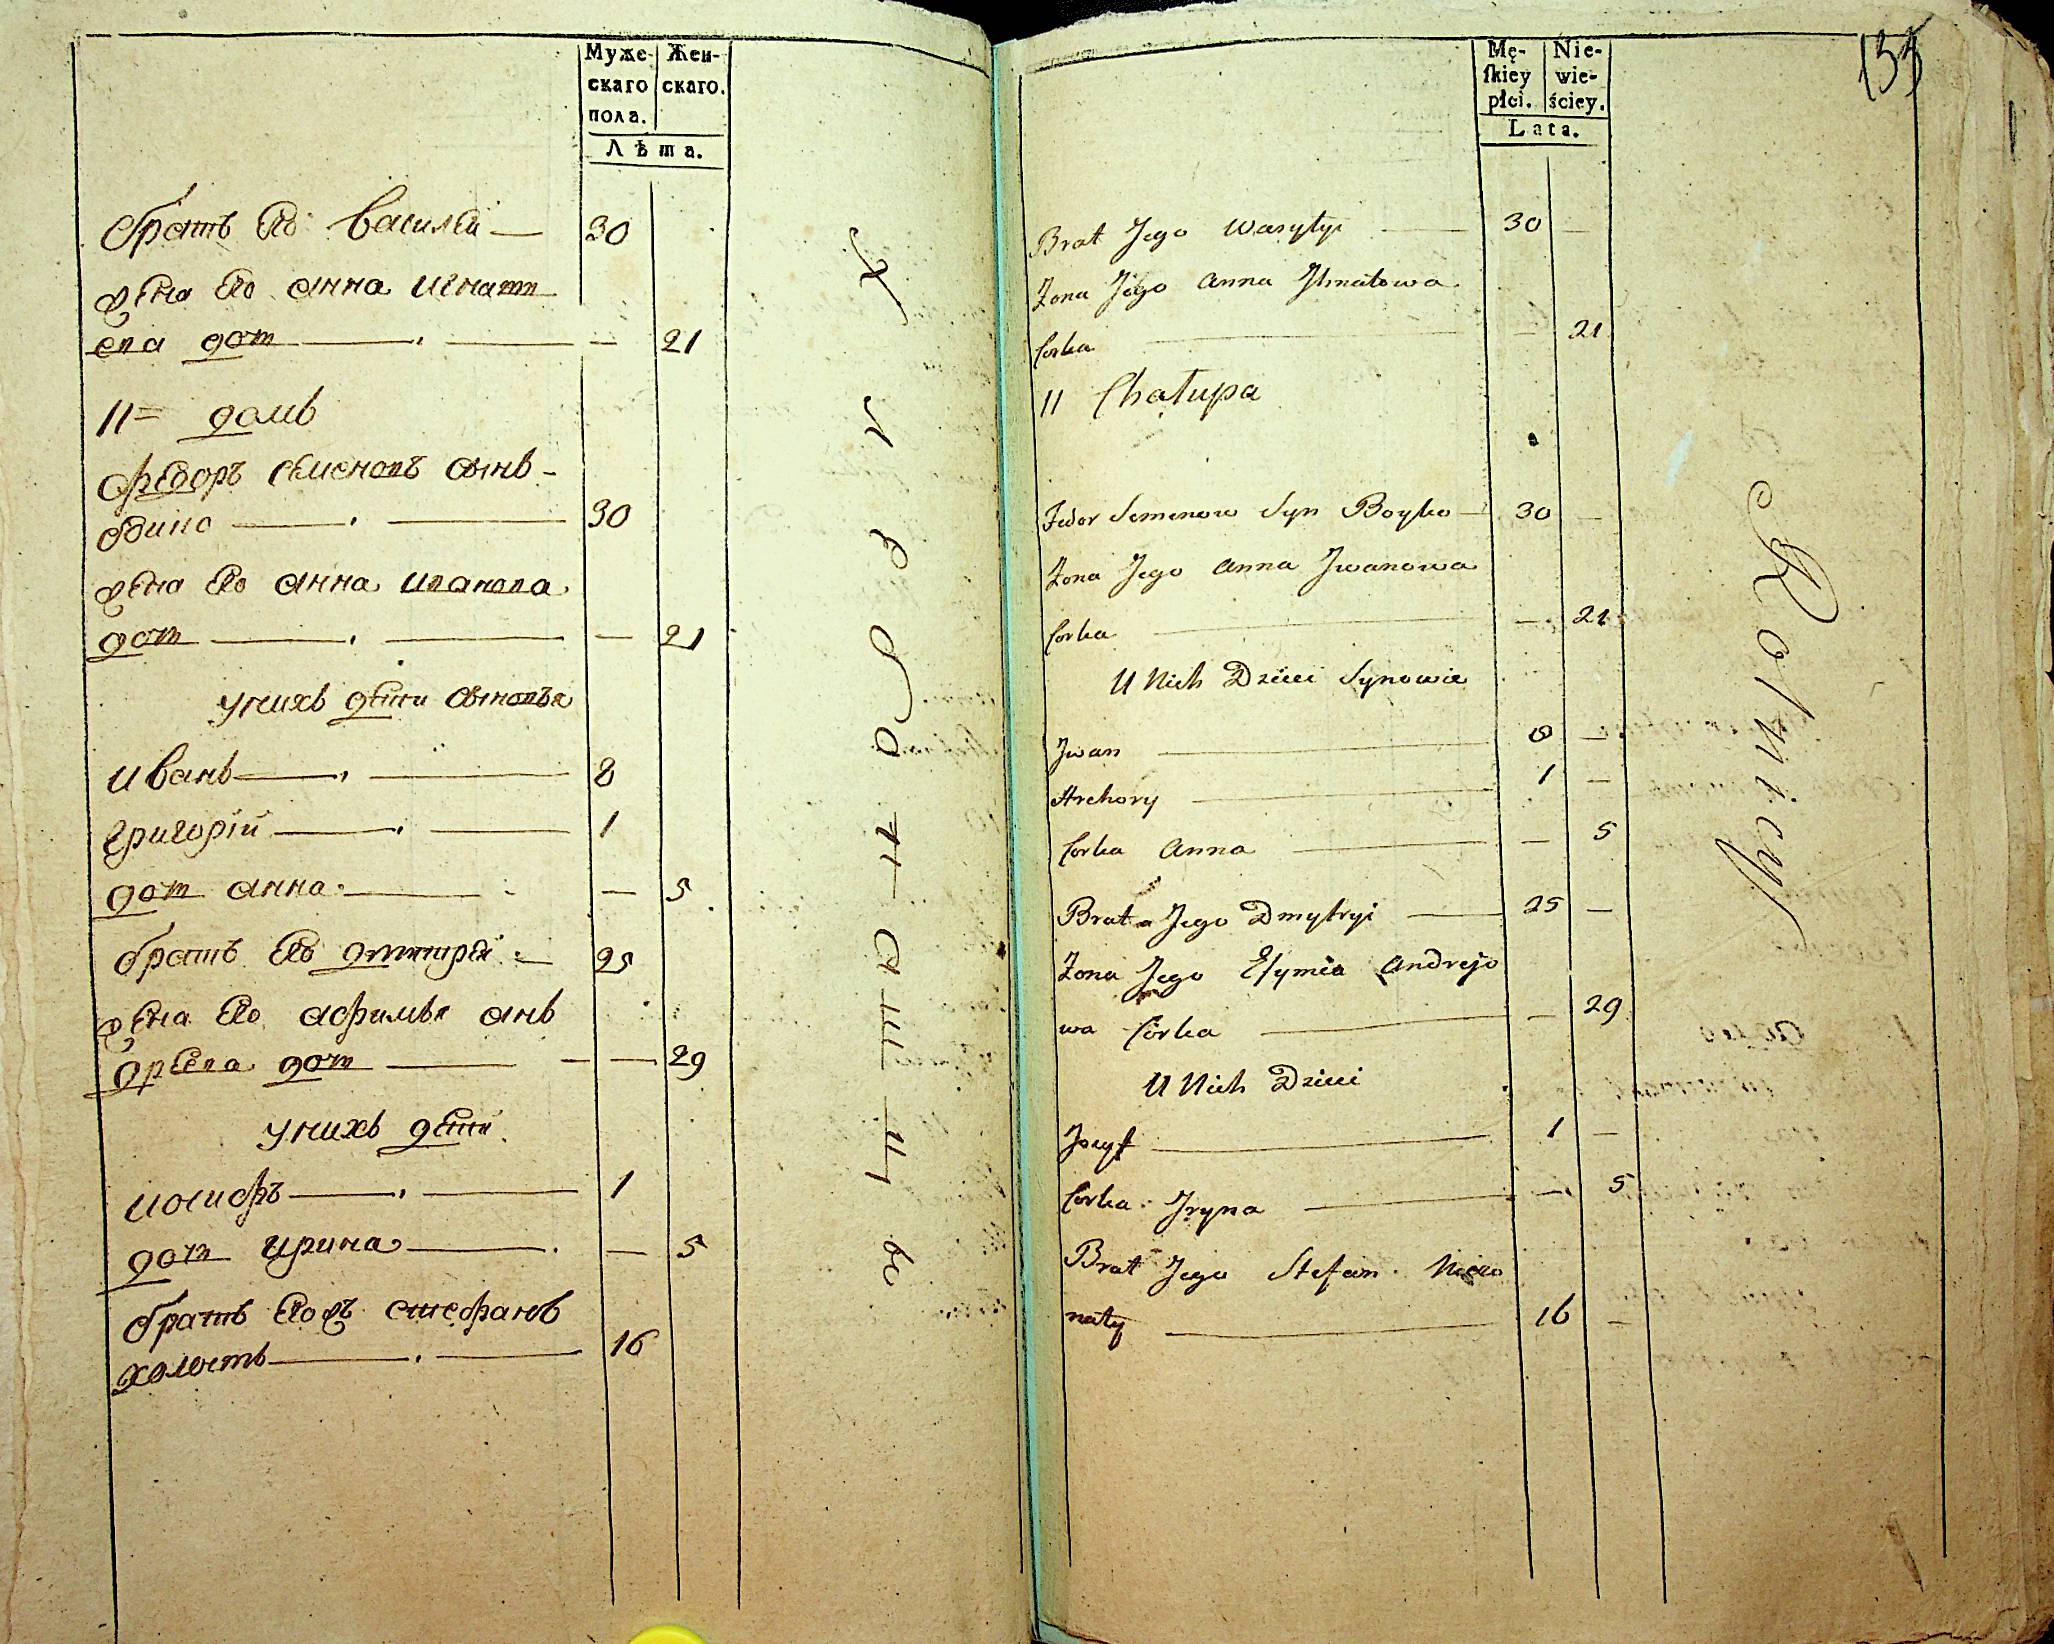 Муже-
скаго
пола.
Жен-
скаго.
Лѣта.
братъ Его Василей — 30
жена Его анна игнате
ева доч — — 21
11= домъ
федоръ семеновъ сынъ -
30
жена Его анна иванова
доч — — 21
у нихъ дети сыновья
иванъ — 8
григорій — 1
доч анна — — 5
братъ Его дмитрей — 25
жена Его афимья анъ
дреева доч — — 29
у нихъ дети
иосифъ — 1
доч ирина — — 5
братъ Егожъ стефанъ
холостъ — 16
Хлебопашцы
133
Mę-
skiey
płci.
Nie-
wie-
ściey.
Lata.
Brat Jego Wasylyi — 30 —
Żona Jego Anna Ihnatowa
Corka — — 21
11 Chałupa
Fedor Semenow Syn Boyko — 30 —
Żona Jego Anna Jwanowa
Corka — — 21
U Nich Dzieci Synowie
Jwan — 8 —
Hrehory — 1 —
Corka Anna — — 5
Brat Jego Dmytryi — 25 —
Żona Jego Efymia Andrejo
wa Córka — — 29
U Nich Dzieci
Jozyf — 1 —
Corka Jryna — — 5
Brat Jego Stefan Nieżo
naty — 16 —
Rolnicy